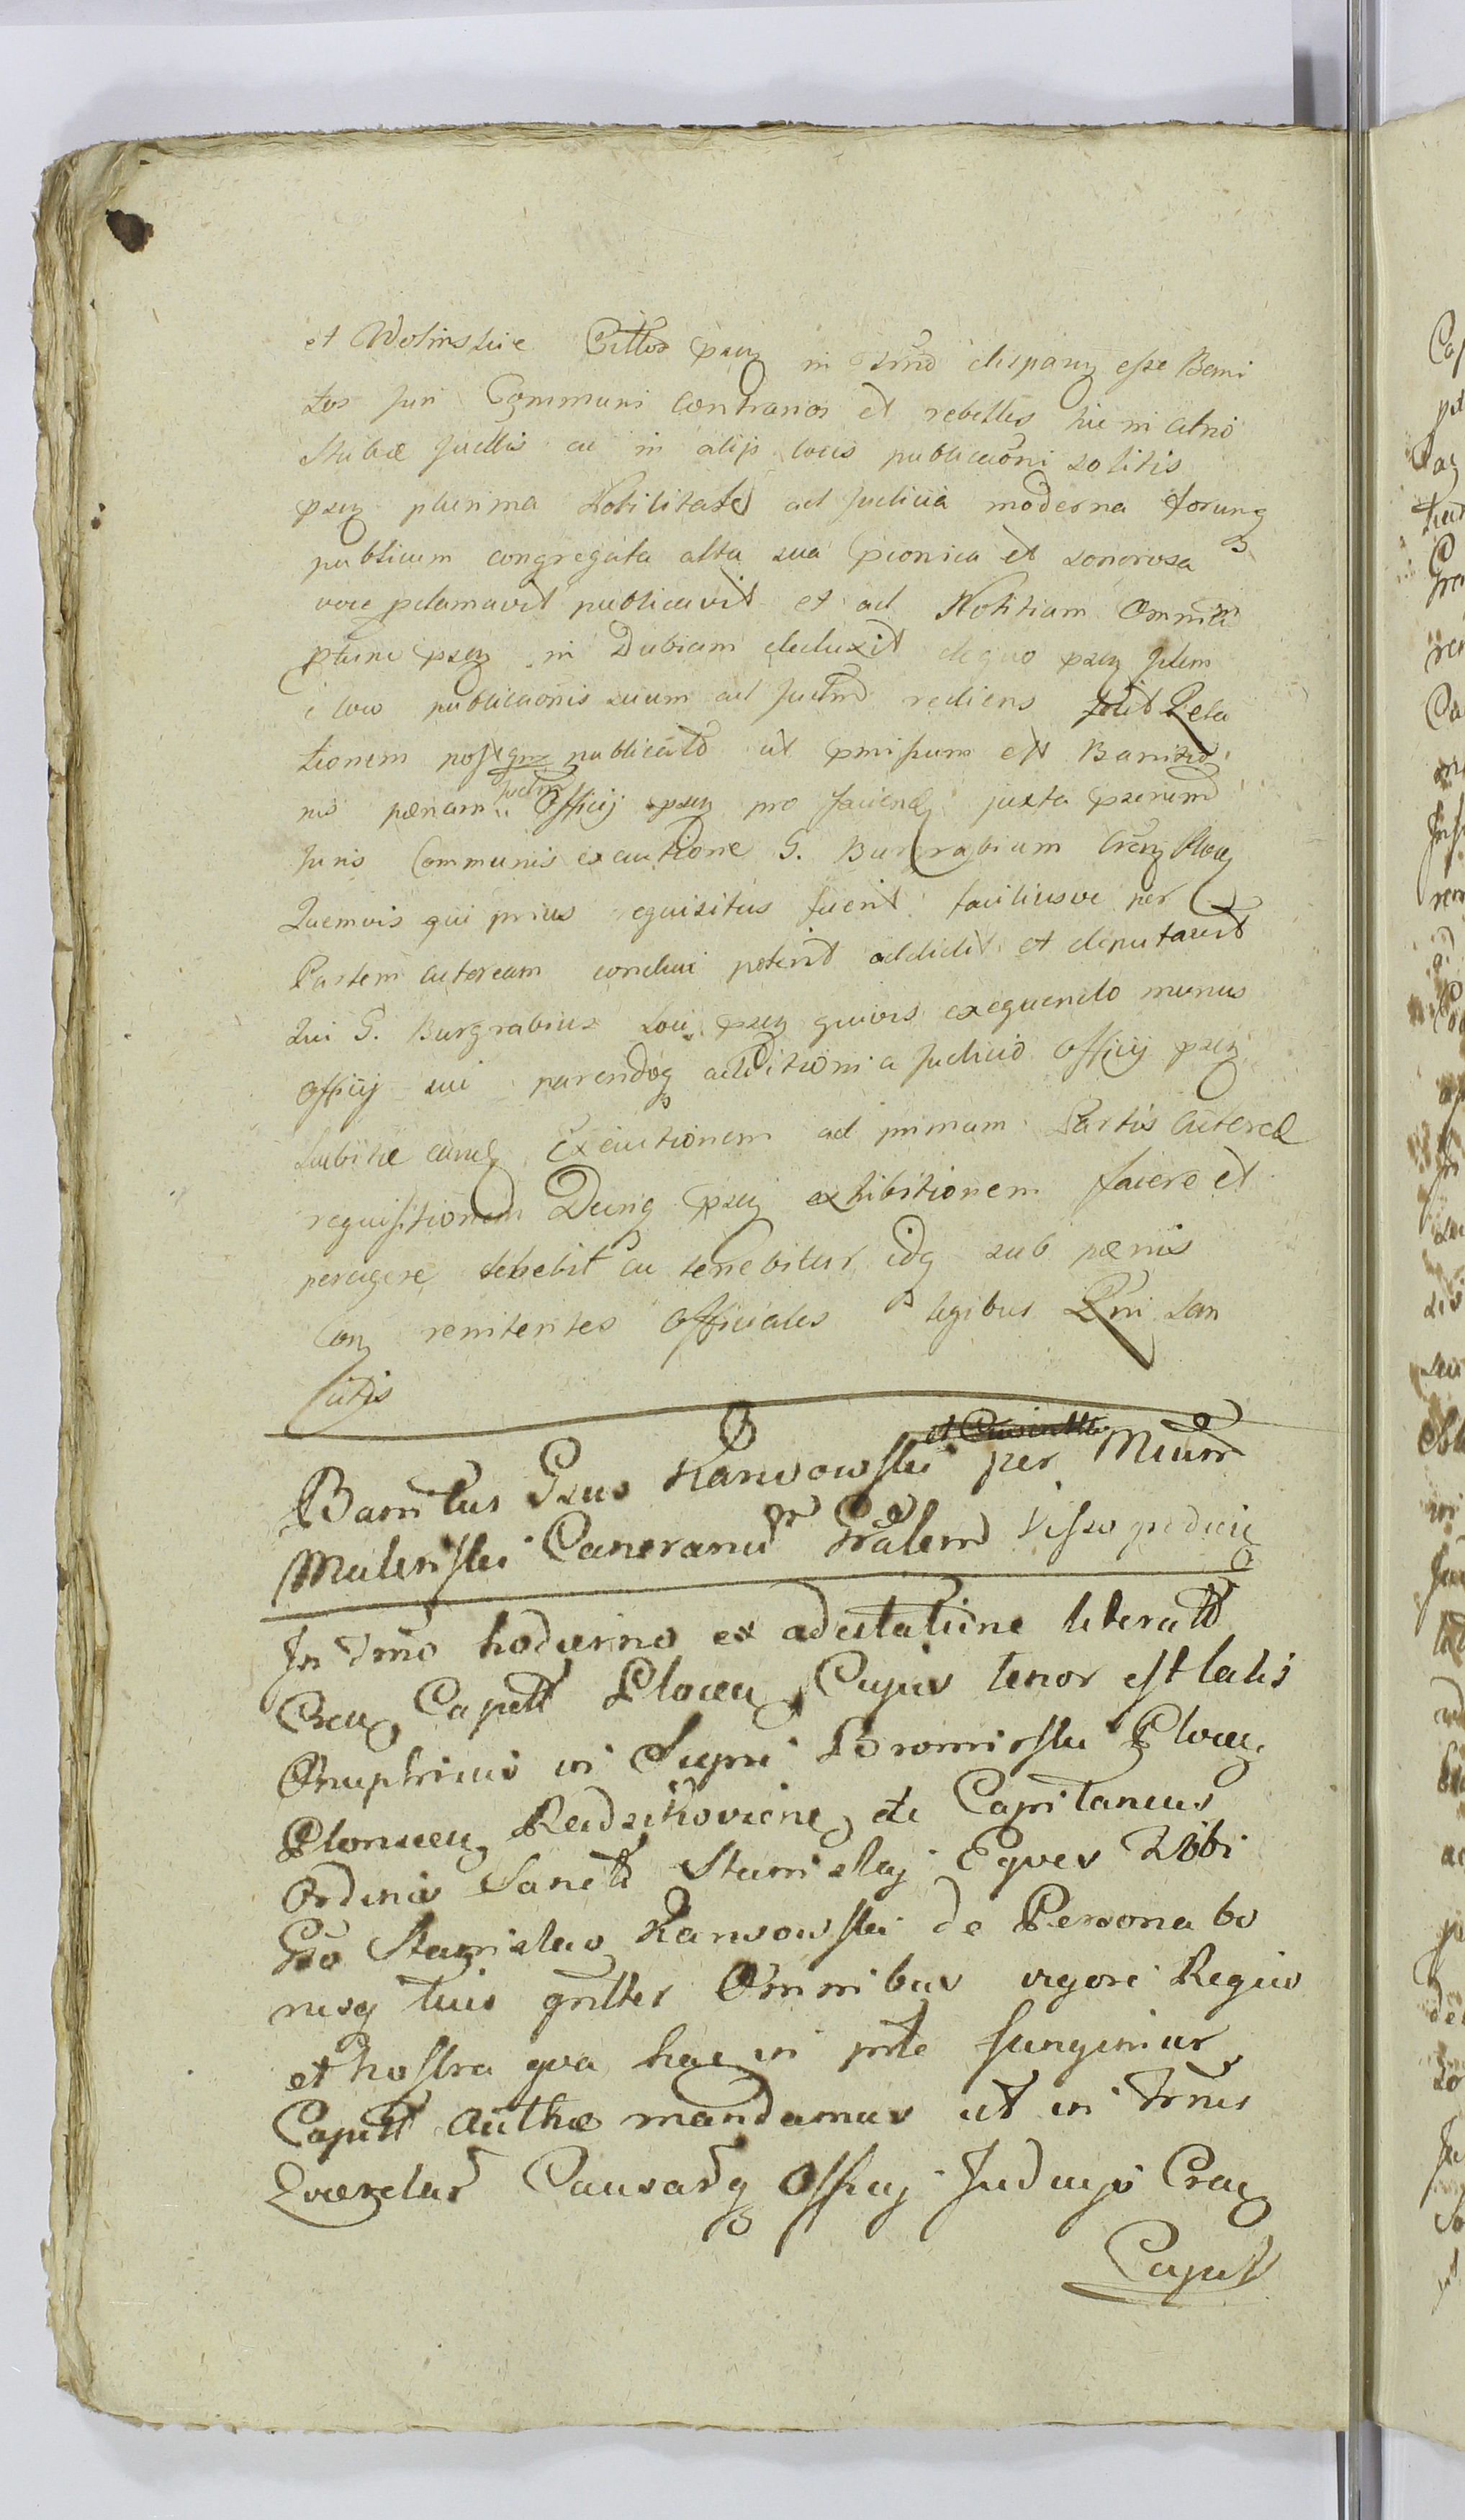 et Wolinskie Cittos psen in Trno dispanz esse Bani
tos Juri Communi contrarios et rebelles hic in atrio
Stubæ Judlis ac in alijs locis publicaoni solitis
psen plurima Nobilitate ad Judicia moderna forumq
publicum congregata alta sua pconica et sonorosa
voce pclamavit publicavit et ad Notitiam Omnium
ptune psen in Dubiam deduxit de quo psen Idem
e loco publicaonis suum ad Judm rediens fecit Rela
tionem post qm publicato ut pmissum est Bannitio
nis pœnam Judm Officij psen pro faciend juxta pscrim
Juris Communis executione G. Burgrabium Cren Plocen
Quemvis qui prius requisitus fuerit faciliusve per
Partem Actoream conduci poterit addidit et deputavit
Qui G. Burgrabius Loci psen quivis exequendo munus
Officij sui parendoq additioni a Judicio Officij psen
Subitæ eand Executionem ad primam Partis Actoreæ
requisitionem Decriq psen exhibitionem facere et
peragere debebit ac tenebitur idq sub pœnis
Con renitentes Officiales legibus Rni San
citis
Banitus Gsus Karwowski per Mcum
Mulinski Caneranu Trälem Visso pdicie
In Trno hodierno ex adcitatione literali
Cren Capeal Plocen Cujus tenor est talis
Onuphrius in Siepri Bromirski Plocen
Plonscen Radzikovicen etc Capitaneus
Ordinis Sancti Stanislaj Eques Tibi
Gso Stanislao Karwowski de Persona bo
nisq tuis gnlter Omnibus vigore Regia
et Nostra qua hac in prte fungimur
Capeali Authæ mandamus ut in Trnis
Querelar Causarq Officij Judicijs Cren
Capeal